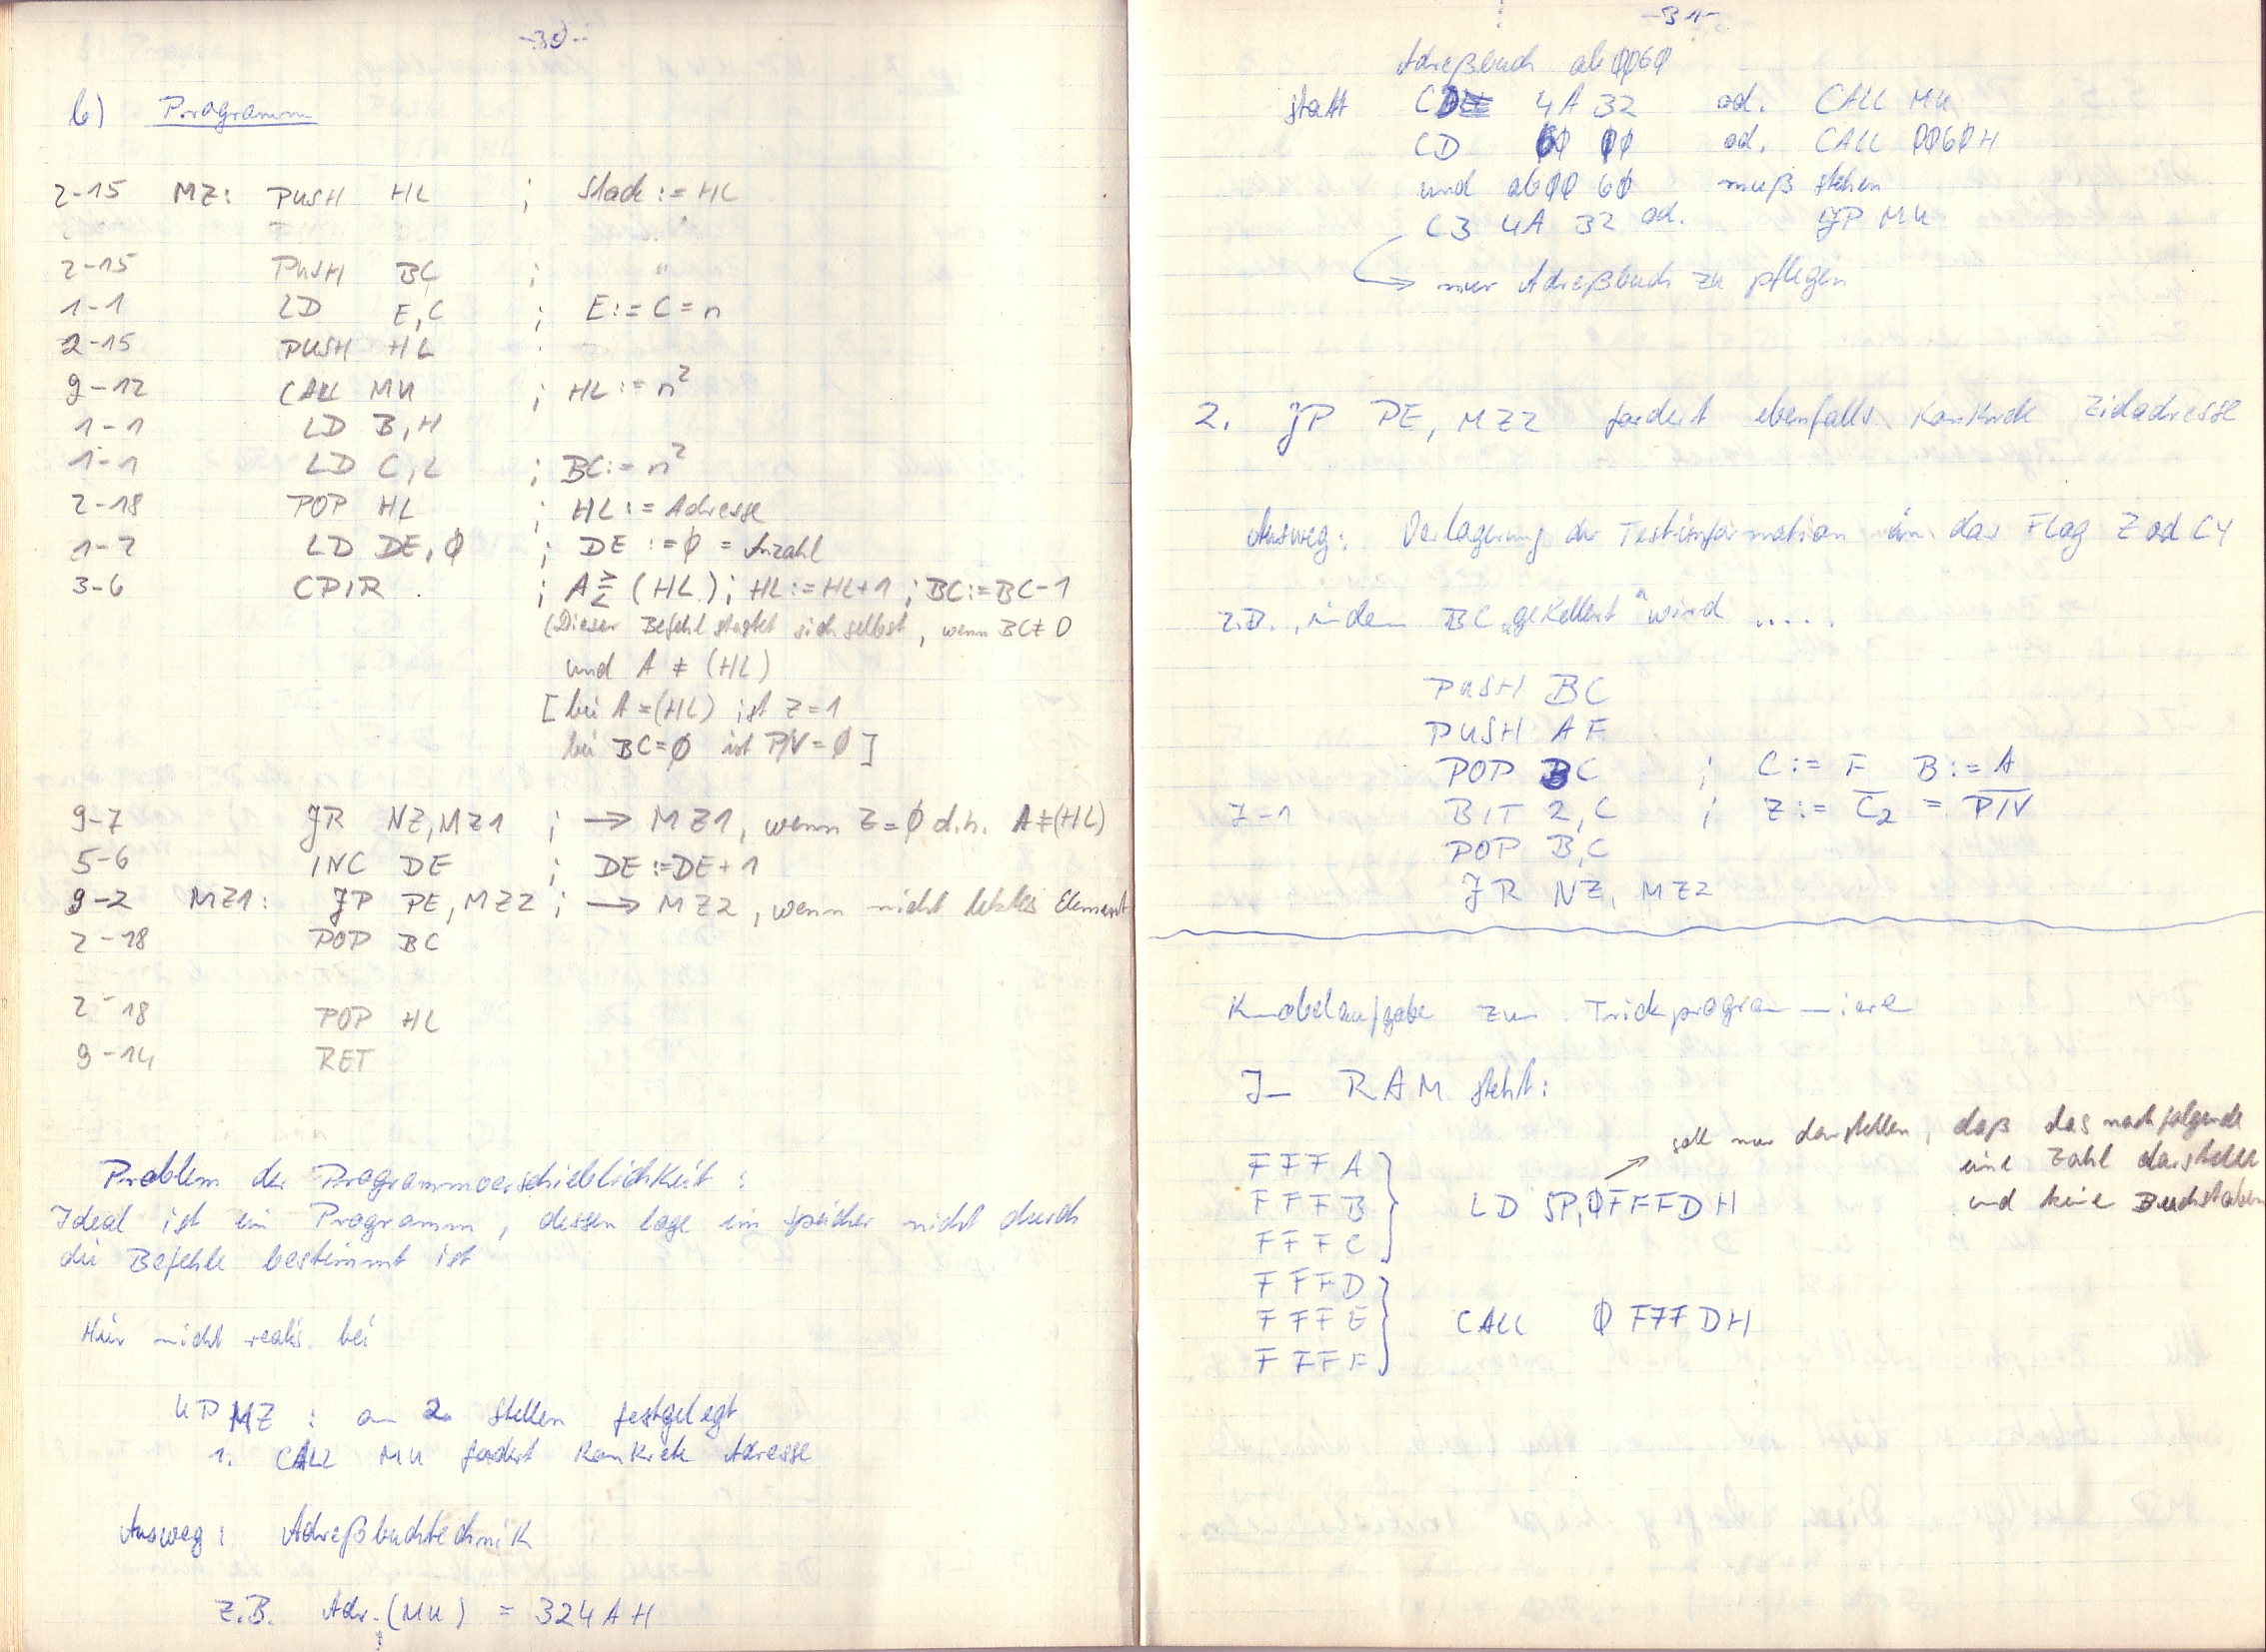 -30-
b) Programm
2-15 MZ: PUSH HL ; Stack := HL
2-15 PUSH BC ; "
1-1 LD E,C ; E := C = n
2-15 PUSH HL
9-12 CALL MU ; HL := n²
1-1 LD B,H
1-1 LD C,L ; BC := n²
2-18 POP HL ; HL := Adresse
1-2 LD DE,Ø ; DE := Ø = Anzahl
3-6 CPIR ; A ⋛ (HL) ; HL := HL+1 ; BC := BC-1
(Dieser Befehl startet sich selbst, wenn BC≠0
und A ≠ (HL)
[bei A=(HL) ist Z=1
bei BC=Ø ist P/V=Ø]
9-7 JR NZ,MZ1 ; → MZ1, wenn Z=Ø d.h. A≠(HL)
5-6 INC DE ; DE := DE+1
9-2 MZ1: JP PE,MZ2 ; → MZ2, wenn nicht letztes Element
2-18 POP BC
2-18 POP HL
9-14 RET
Problem der Programmverschieblichkeit:
Ideal ist ein Programm, dessen Lage im Speicher nicht durch
die Befehle bestimmt ist
Hier nicht realis. bei
UP MZ : an 2 Stellen festgelegt
1. CALL MU fordert konkrete Adresse
Ausweg: Adreßbuchtechnik
z.B. Adr.(MU) = 324AH
-31-
Adreßbuch ab ØØ6Ø
statt CD 4A 32 od. CALL MU
CD 6Ø ØØ od. CALL ØØ6ØH
und ab ØØ 6Ø muß stehen
C3 4A 32 od. JP MU
→ nur Adreßbuch zu pflegen
2. JP PE, MZ2 fordert ebenfalls konkrete Zieladresse
Ausweg: Verlagerung der Testinformation in das Flag Z od CY
z.B., indem BC „gekellert" wird .....
PUSH BC
PUSH AF
POP BC ; C := F B := A
7-1 BIT 2,C ; Z := C̅₂ = P̅/̅V̅
POP B,C
JR NZ, MZ2
Knobelaufgabe zum Trickprogrammieren
Im RAM steht:
soll nur darstellen, daß das nachfolgende
eine Zahl darstellt
und keine Buchstaben
FFFA
FFFB LD SP,ØFFFDH
FFFC
FFFD
FFFE CALL ØFFFDH
FFFF